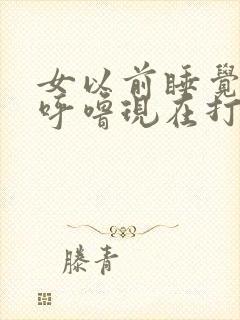 女以前睡覺
呼嚕現在打
滕青